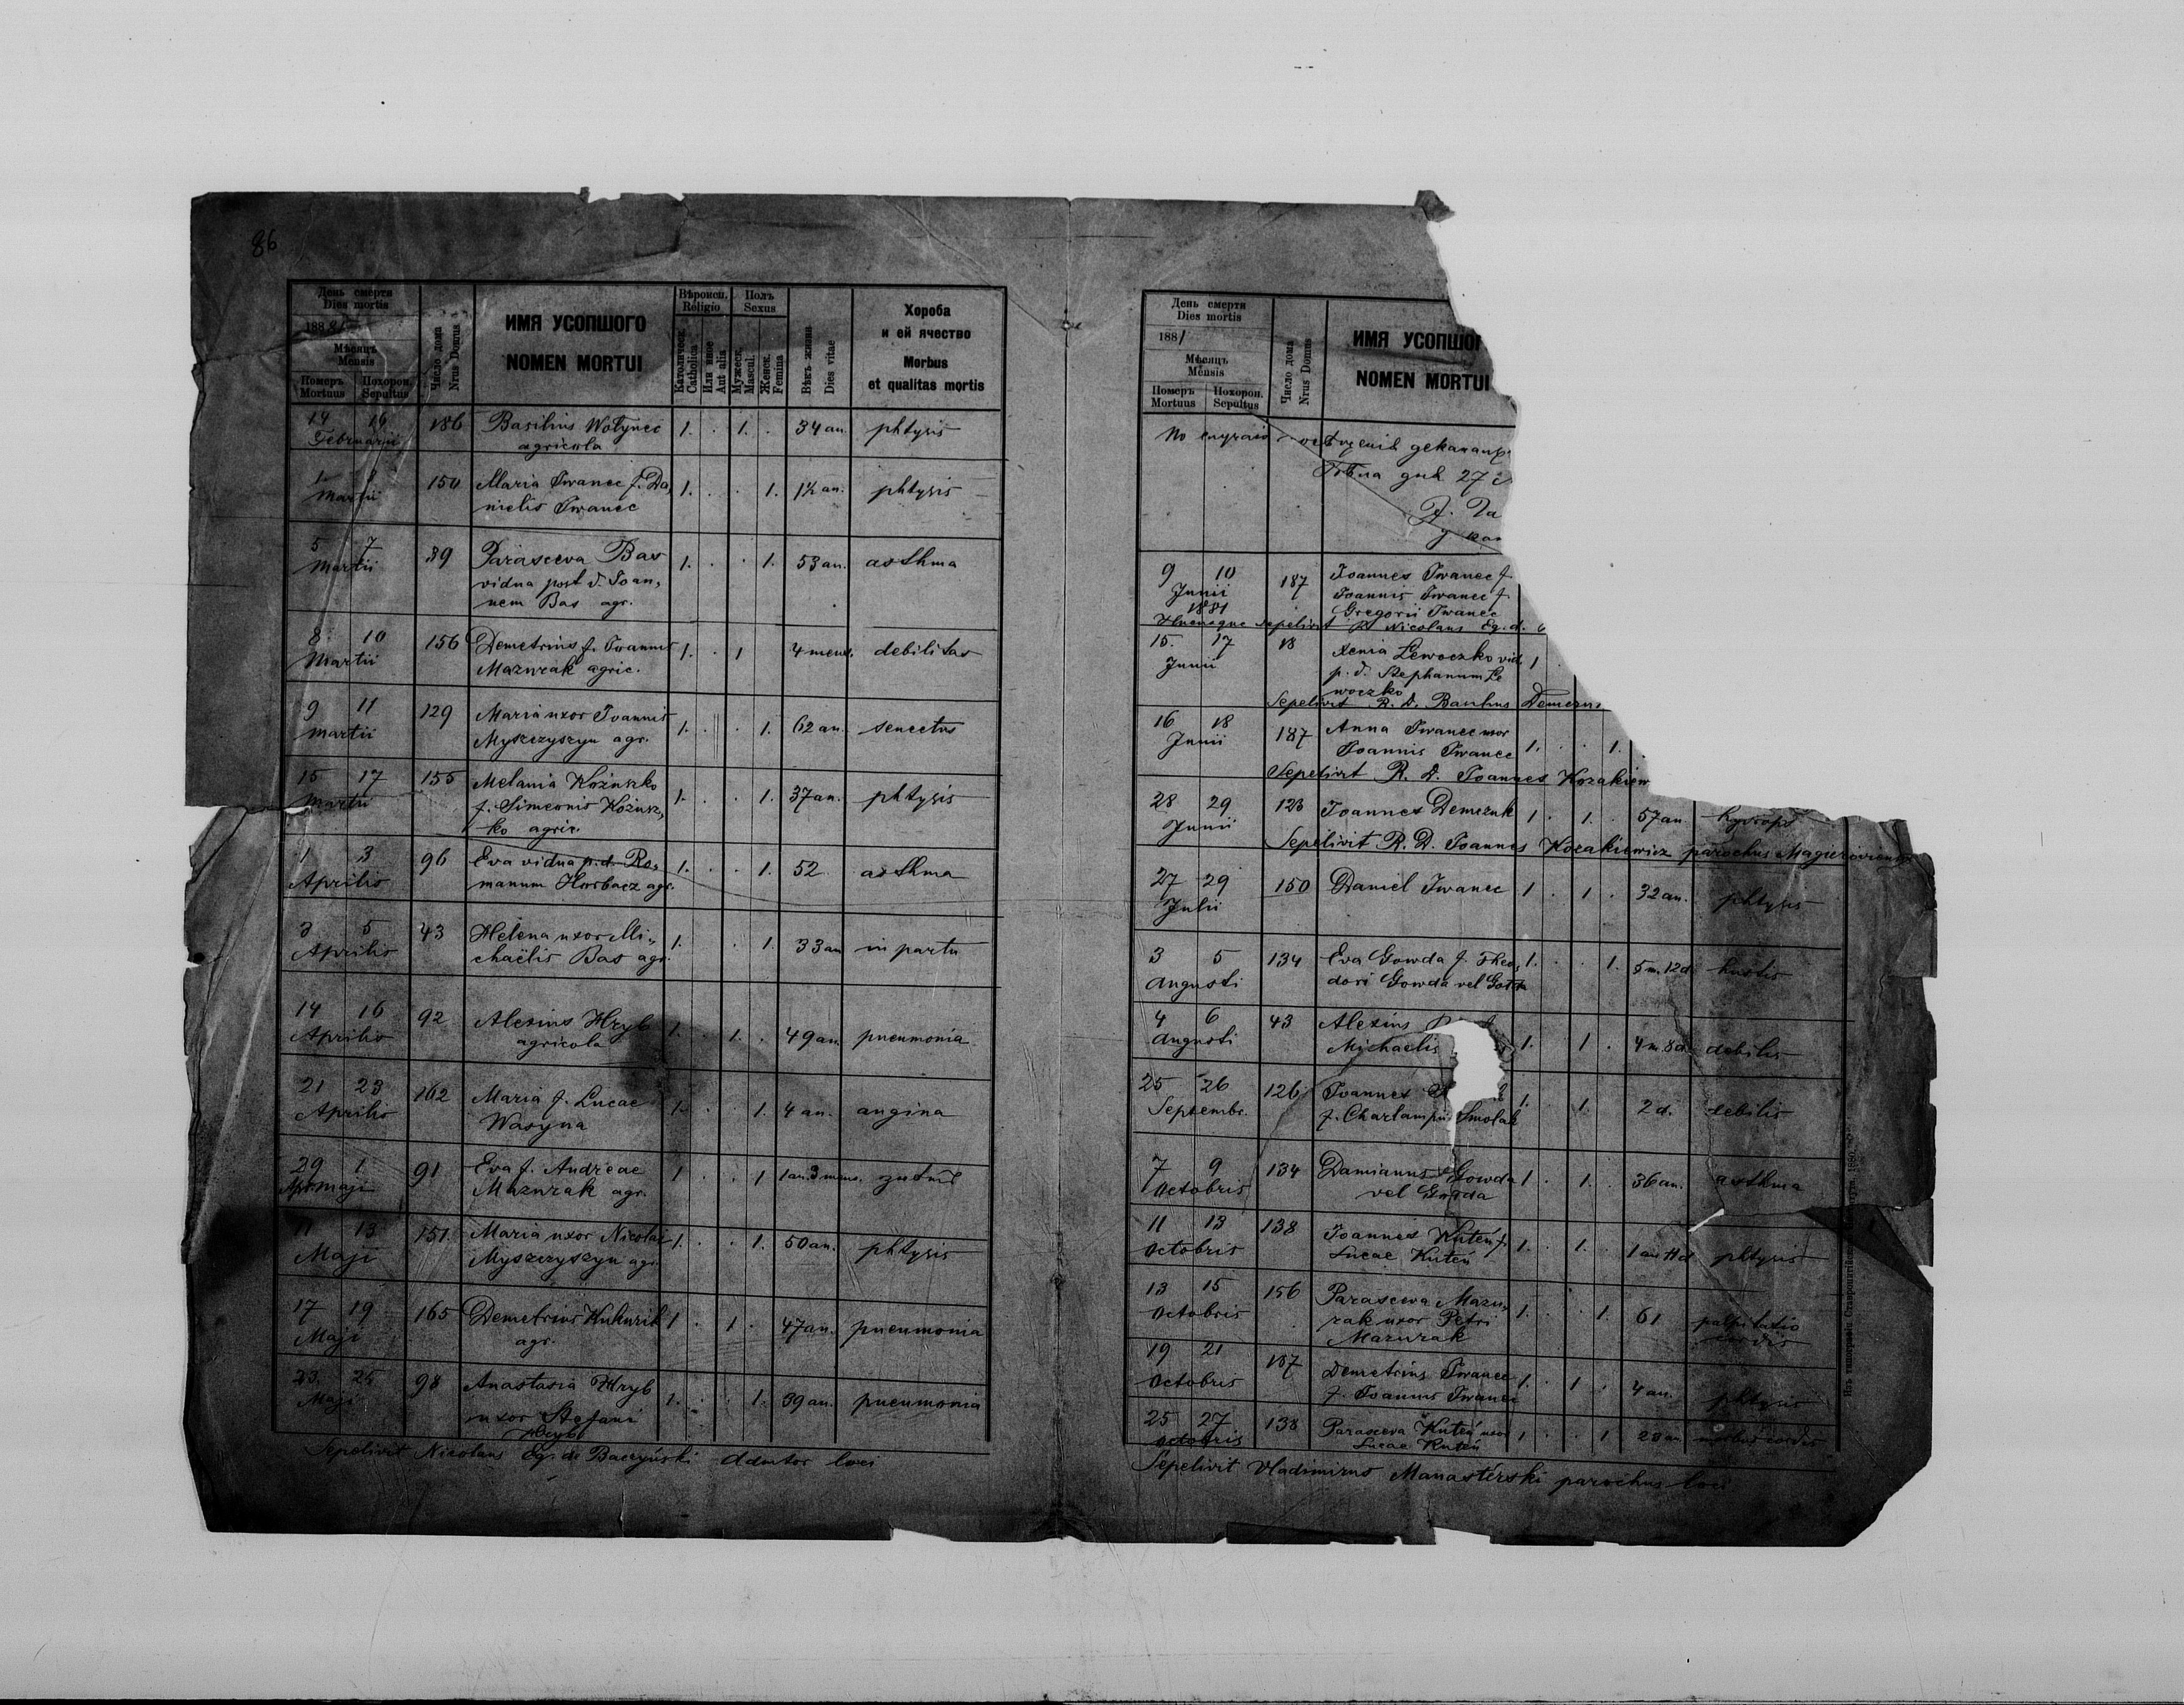 86
День смерти
Dies mortis
1881
Мѣсяцъ
Mensis
Померъ
Mortuus
Похорон.
Sepultus
Число дома
Nrus Domus
ИМЯ УСОПШОГО
NOMEN MORTUI
Вѣроисп.
Religio
Католическ.
Catholica
Или иное
Aut alia
Полъ
Sexus
Мужеск.
Mascul.
Женск.
Femina
Вѣкъ жизни
Dies vitae
Хороба
и ей ячество
Morbus
et qualitas mortis
14 16 186 Basilius Wołynec 1. . 1. . 34 an. phtysis
Februarii agricola
1 3 150 Maria Iwanec f. Da, 1. . . 1. 1½ an. phtysis
Martii nielis Iwanec
5 7 89 Parasceva Bas 1. . . 1. 53 an. asthma
Martii vidua post d. Joan,
nem Bas agr.
8 10 156 Demetrius f. Joannis 1. . 1 4 mens. debilitas
Martii Mazurak agric.
9 11 129 Maria uxor Joannis 1. . . 1. 62 an. senectus
Martii Myszczyszyn agr.
15 17 155 Melania Kożuszko 1. . . 1. 37 an. phtysis
Martii f. Simeonis Kożusz,
ko agric.
1 3 96 Eva vidua p. d. Ro, 1. . . 1. 52 asthma
Aprilis manum Horbacz agr.
3 5 43 Helena uxor Mi, 1. . 1. 33 an in partu
Aprilis chaëlis Bas agr.
14 16 92 Alexius Hryb 1. . 1. . 49 an. pneumonia
Aprilis agricola
21 23 162 Maria f. Lucae 1. . . 1. 4 an. angina
Aprilis Wasyna
29 1 91 Eva f. Andreae 1 . . 1 1 an. 3 mens.
Apr. maji Mazurak agr.
11 13 151 Maria uxor Nicolai 1. . . 1. 50 an. phtysis
Maji Myszczyszyn agr.
17 19 165 Demetrius 1 . 1 . 47 an. pneumonia
Maji agr.
23 25 98 Anastasia Hryb 1. . . 1. 39 an. pneumonia
Maji uxor Stefani
Hryb
Sepelivit Nicolaus Eq. de Baczyński Admtor loci
День смерти
Dies mortis
1881
Мѣсяцъ
Mensis
Померъ
Mortuus
Похорон.
Sepultus
Число дома
Nrus Domus
ИМЯ УСОПШОГ
NOMEN MORTUI
дня 27
9 10 187 Joannes Iwanec f.
Junii Joannis Iwanec f.
1881 Gregorii Iwanec
Hucusque sepelivit R. Nicolaus Eq. d.
15. 17 18 Xenia Lewoczko vid. 1 .
Junii p. d. Stephanum Le
woczko
Sepelivit R. D. Paulus
16 18 187 Anna Iwanec uxor 1. . . 1.
Junii Joannis Iwanec
Sepelivit R. D. Joannes Kozakiew
28 29 123 Joannes Demczuk 1 . 1. . 57 an. hydrops
Junii
Sepelivit R. D. Joannes Kozakiewicz parochus
27 29 150 Daniel Iwanec 1 . 1 . 32 an. phtysis
Julii
3 5 134 Eva Gowda f. Theo, 1. . . 1. 5 m. 12 d.
Augusti dori Gowda vel
4 6 43 Alexius 1. . 1 . 4 m. 8 d. debilis
Augusti Michaelis
25 26 126 Joannes 1. . 1. 2 d. debilis
Septembr. f. Charlampii Smolak
7 9 134 Damianus Gowda 1 . 1. . 36 an. asthma
Octobris vel
11 13 138 Joannes Kuteń f. 1. . 1. . phtysis
Octobris Lucae Kuteń
13 15 156 Parasceva Mazu, 1. . . 1. 61 palpitatio
Octobris rak uxor Petri cordis
Mazurak
19 21 187 Demetrius Iwanec 1. . 1 . 4 an. phtysis
Octobris f. Joannis Iwanec
25 27 138 Parasceva Kuteń uxor 1 . . 1 23 an. cordis
Octobris Lucae Kuteń
Sepelivit Vladimirus Manasterski parochus loci